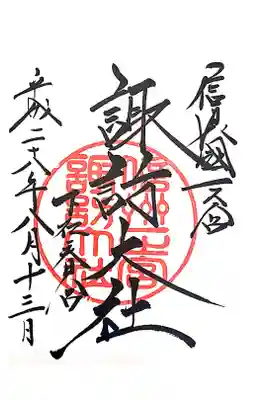 信濃國一之宮
諏訪大社
下社春宮
平成二十八年八月十三日
諏訪大社